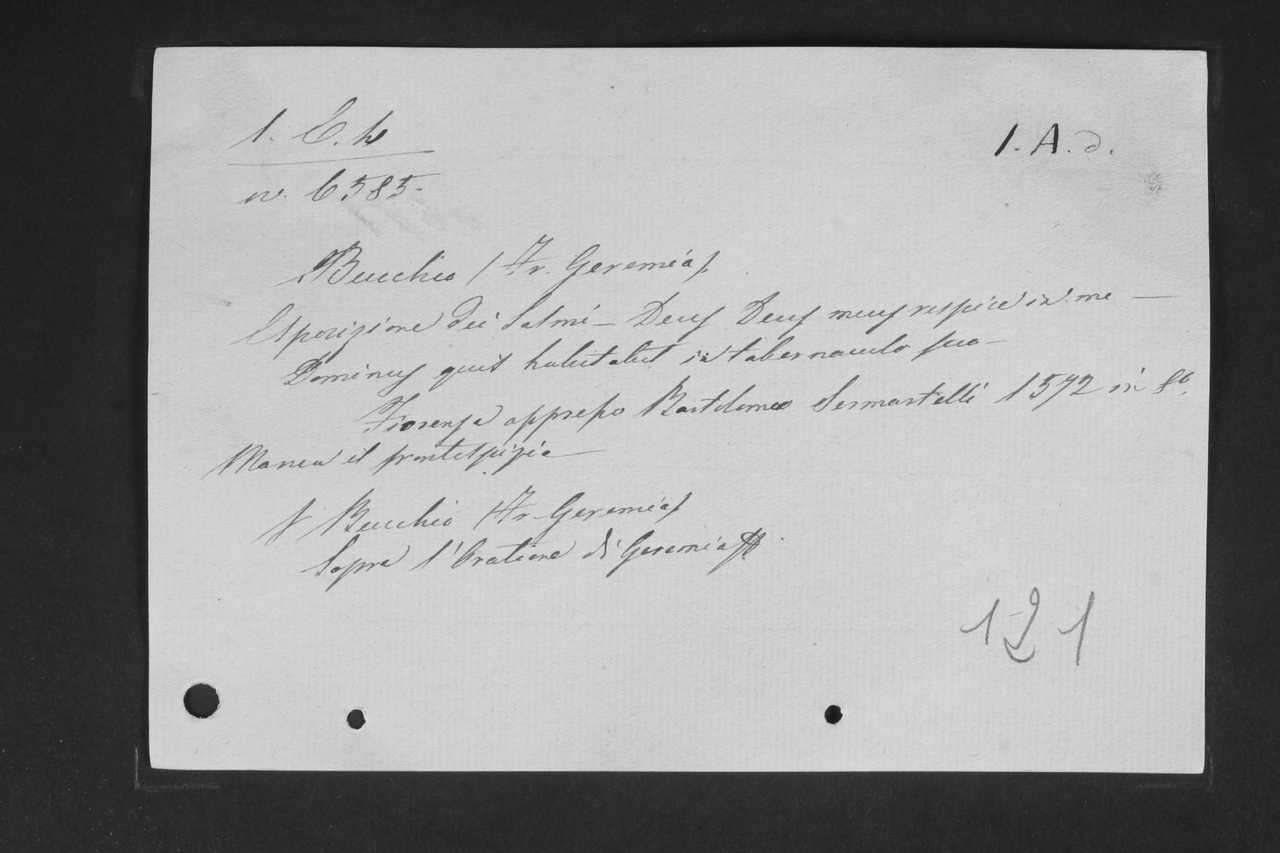 1. E. h
1. A. d.
nº. 6585.
Bucchio /Fr. Geremia/
Esposizione dei Salmi – Deus Deus meus respice in me –
Dominus quis habitabit in tabernaculo suo –
Fiorenza appresso Bartolomeo Sermartelli 1572 in 8º.
Manca il frontespizio –
Bucchio /Fr. Geremia/
Sopra l'Oratione di Geremia
121